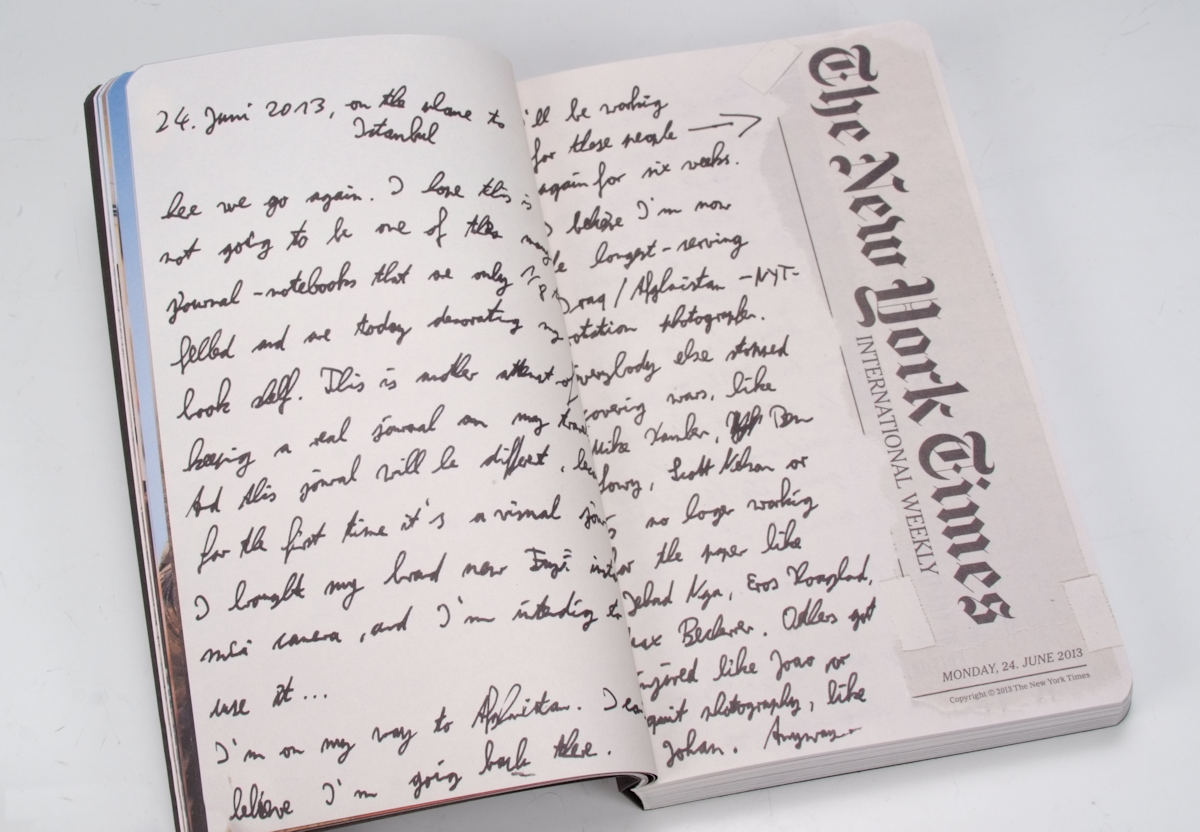 24. Juni 2013, on the plane to
Istanbul
here we go again. I hope this is
not going to be one of the many
journal-notebooks that are only
filled and are today decorating my
book shelf. This is another attempt of
keeping a real journal on my
And this journal will be different,
for the first time it's a visual
I brought my brand new Fuji
mini camera, and I'm intending to
use it...
I'm on my way to Afghanistan. I can
believe I'm going back there.
I'll be working
for these people →
again for six weeks.
I believe I'm now
the longest-serving
Iraq / Afghanistan -NYT-
rotation photographer.
Everybody else stopped
covering wars, like
Mike Kamber, Ben
Lowy, Scott Nelson or
no longer working
for the paper like
Jehad Nga, Eros Hoagland,
Max Becherer. Others got
injured like Joao or
quit photography, like
Johan. Anyway
The New York Times
INTERNATIONAL WEEKLY
MONDAY, 24. JUNE 2013
Copyright © 2013 The New York Times